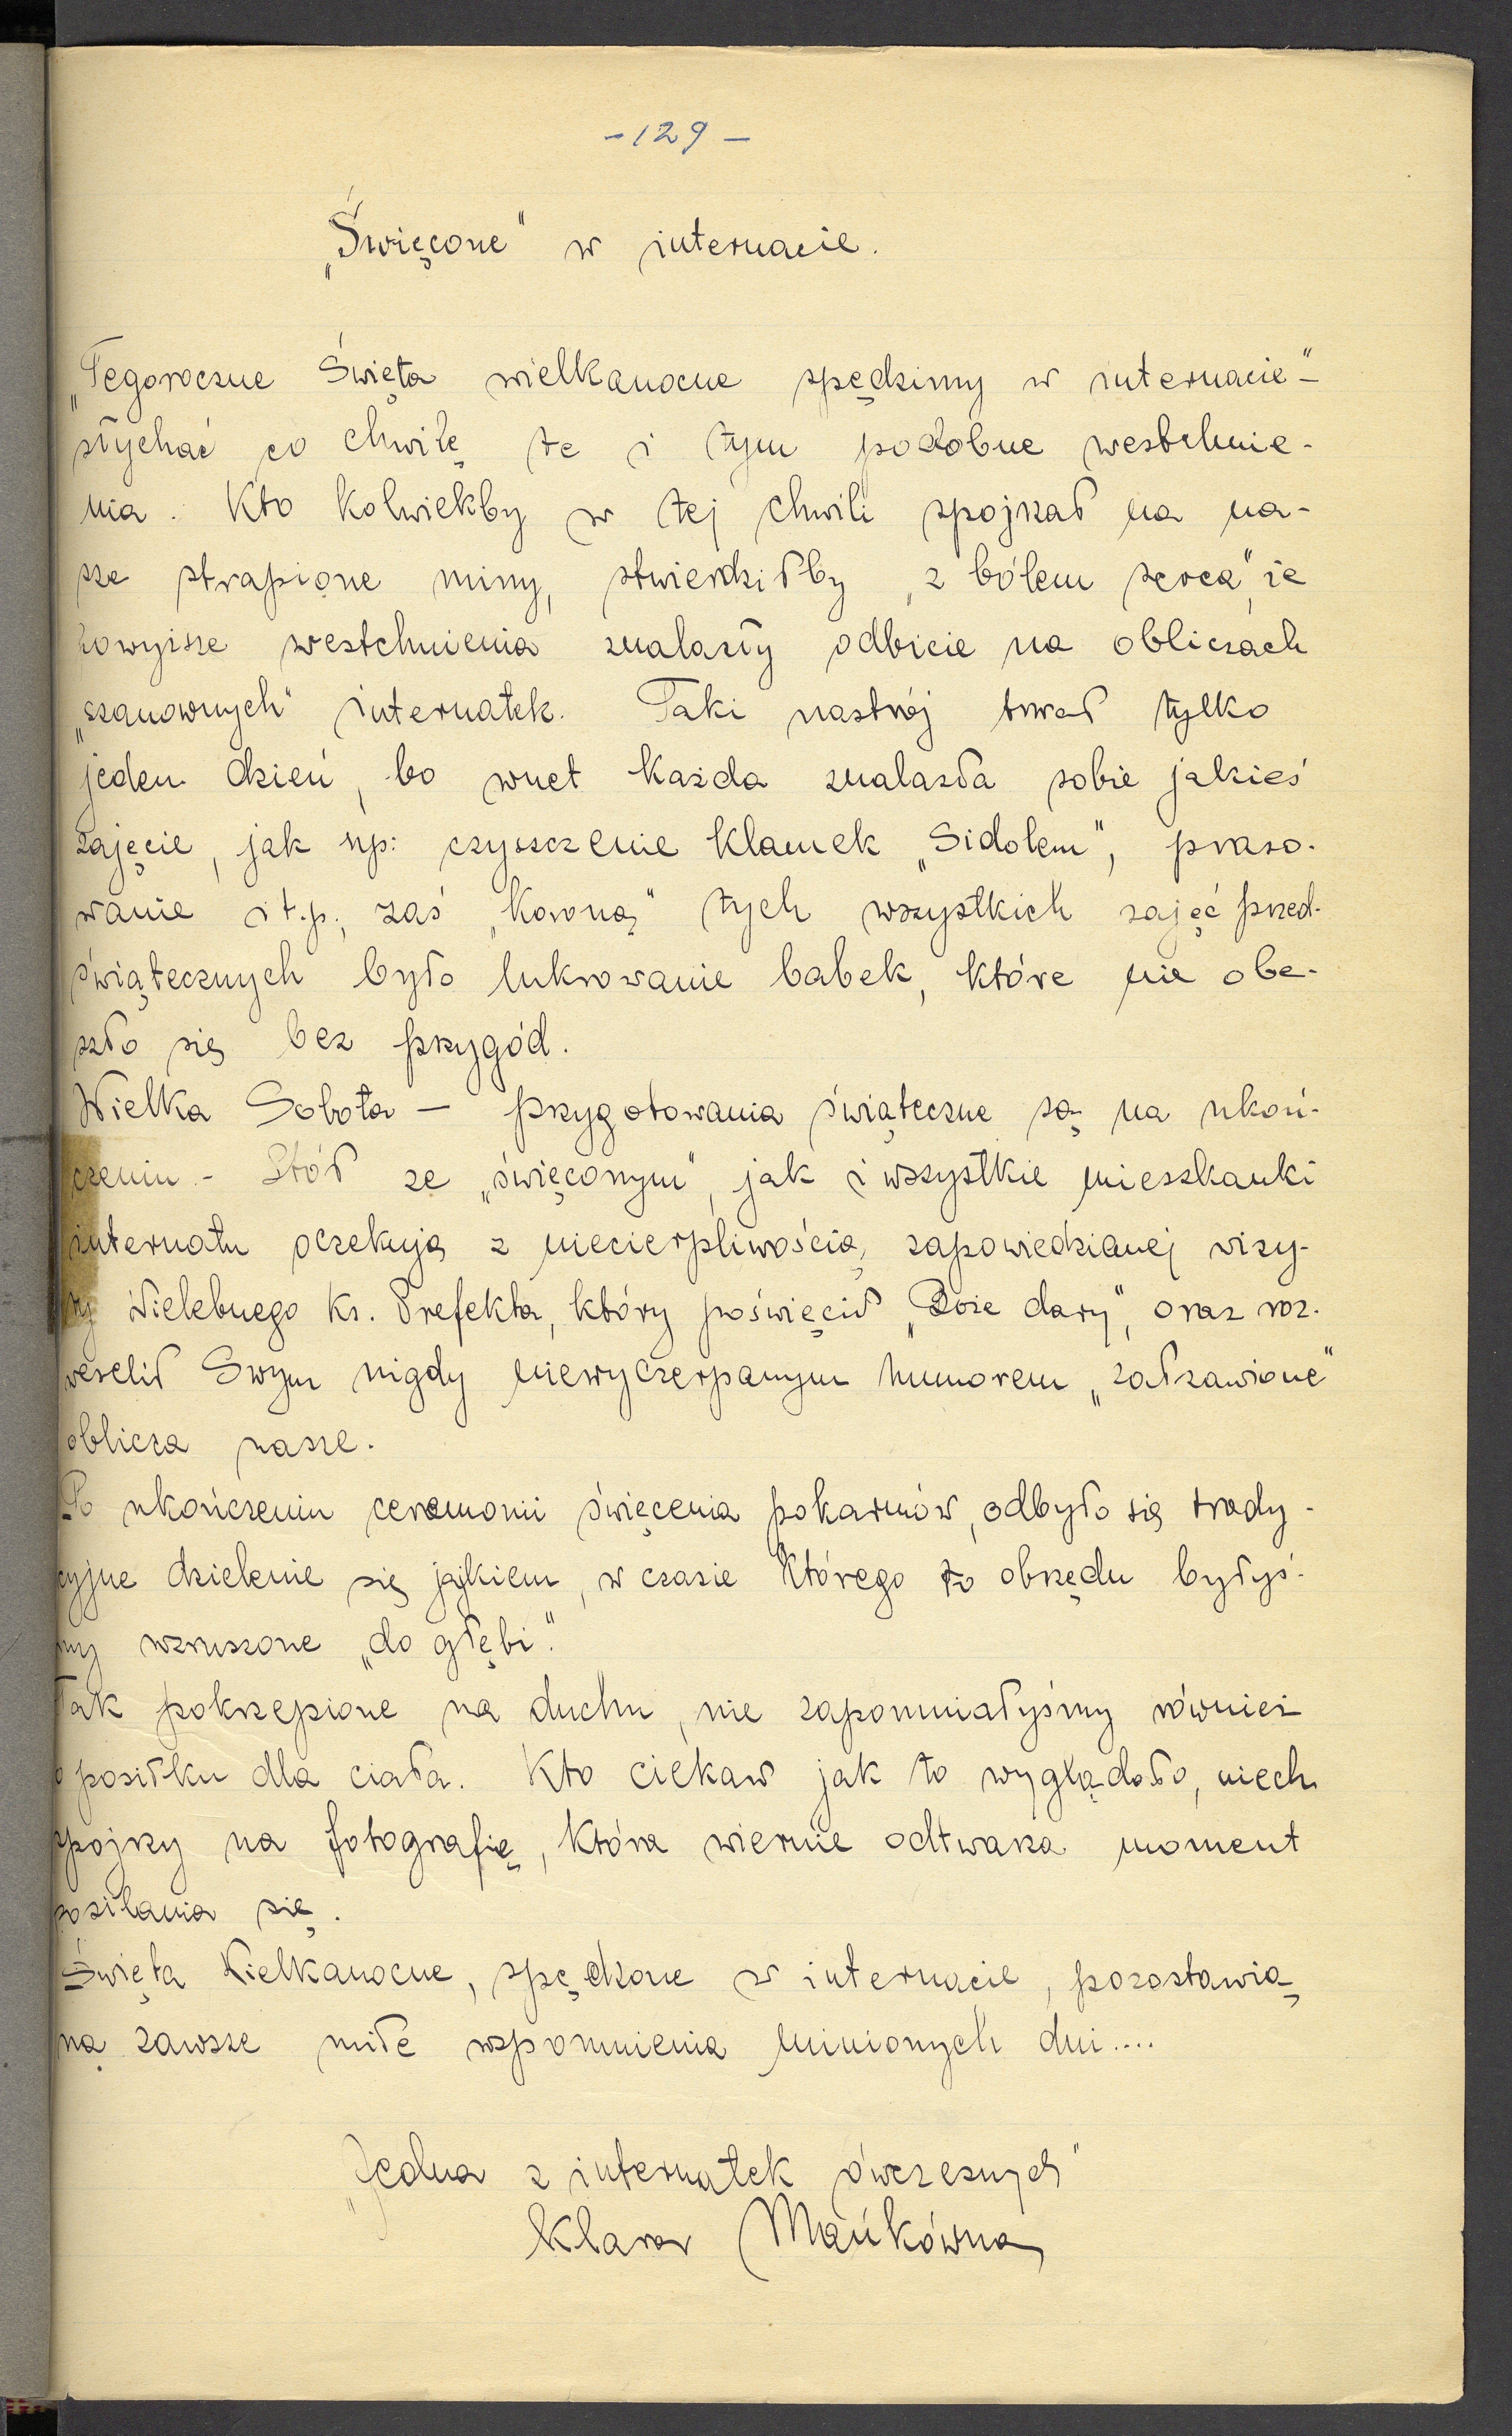 - 129 -
„Święcone" w internacie.
„Tegoroczne Święta wielkanocne spędzimy w internacie"-
słychać co chwilę te i tym podobne westchnie-
nia. Kto kolwiekby w tej chwili spojrzał na na-
sze strapione miny, stwierdziłby „z bólem serca", że
powyższe westchnienia znalazły odbicie na obliczach
„szanownych" internatek. Taki nastrój trwał tylko
jeden dzień, bo wnet każda znalazła sobie jakieś
zajęcie, jak np: czyszczenie klamek „Sidolem", praso-
wanie i t.p., zaś „koroną" tych wszystkich zajęć przed-
świątecznych było lukrowanie babek, które nie obe-
szło się bez przygód.
Wielka Sobota - przygotowania świąteczne są na ukoń-
czeniu - Stół ze „święconym", jak i wszystkie mieszkanki
internatu oczekują z niecierpliwością, zapowiedzianej wizy-
ty Wielebnego Ks. Prefekta, który poświęcił „Boże dary", oraz roz-
weselił Swym nigdy niewyczerpanym humorem „załzawione"
oblicza nasze.
Po ukończeniu ceremonii święcenia pokarmów, odbyło się trady-
cyjne dzielenie się jajkiem, w czasie którego to obrzędu byłyś-
my wzruszone „do głębi".
Tak pokrzepione na duchu, nie zapomniałyśmy również
o posiłku dla ciała. Kto ciekaw jak to wyglądało, niech
spojrzy na fotografię, która wiernie odtwarza moment
posilania się.
Święta Wielkanocne, spędzone w internacie, pozostawią
na zawsze miłe wspomnienia minionych dni....
„Jedna z internatek ówczesnych"
Klara Mańkówna